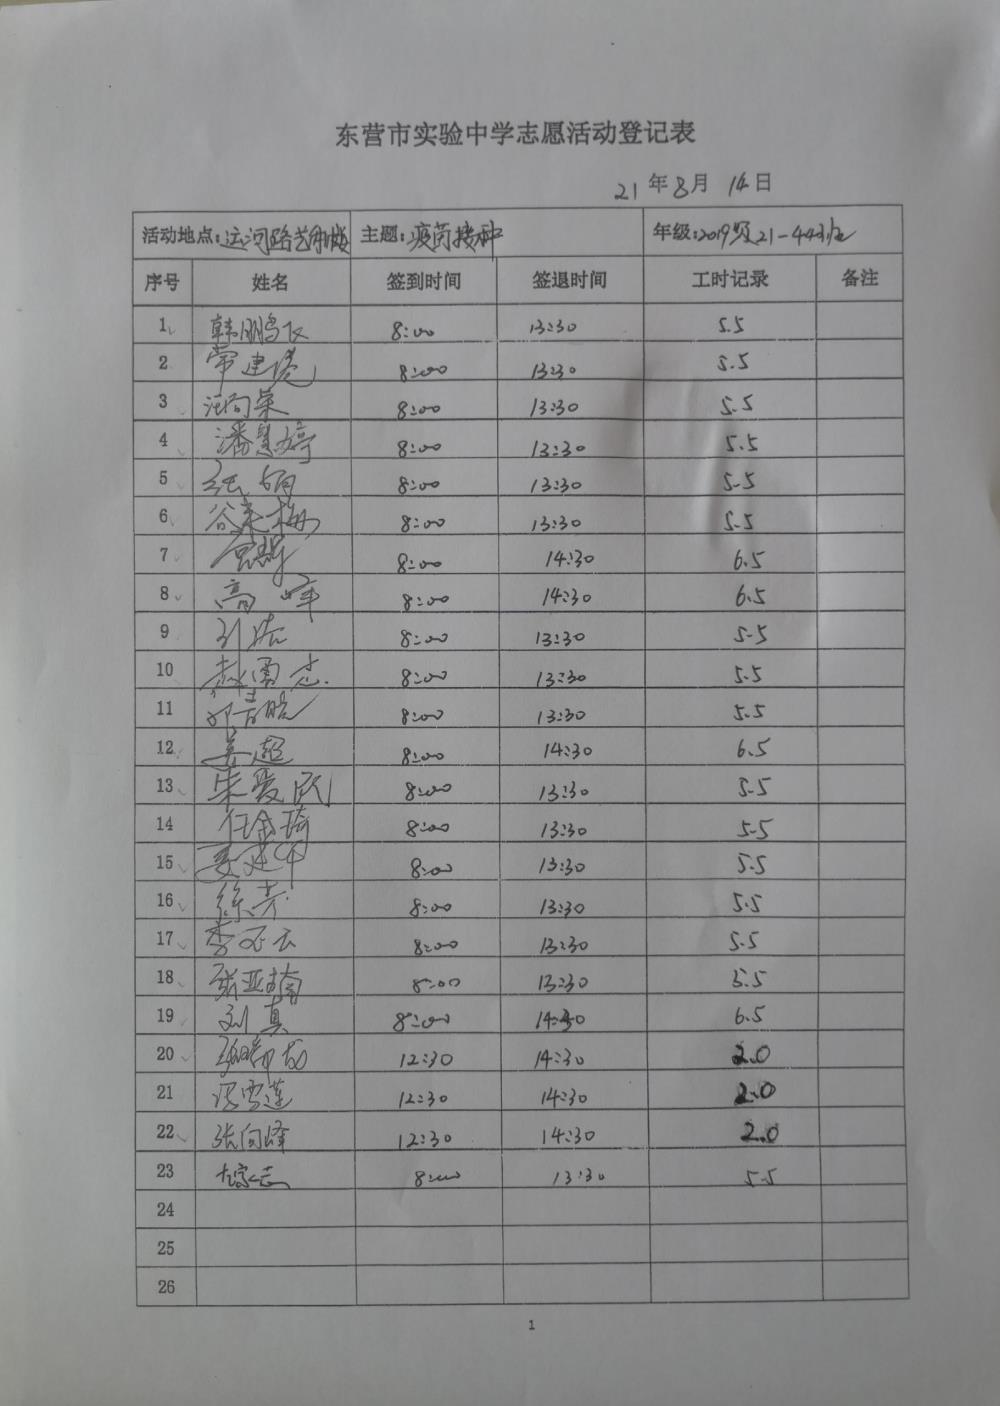 东营市实验中学志愿活动登记表
21年8月14日
活动地点:运河路 主题:疫苗接种 年级:2019级21-44班
序号 姓名 签到时间 签退时间 工时记录 备注
1 韩鹏飞 8:00 13:30 5.5
2 常建港 8:00 13:30 5.5
3 汪向荣 8:00 13:30 5.5
4 潘慧婷 8:00 13:30 5.5
5 张娟 8:00 13:30 5.5
6 谷来梅 8:00 13:30 5.5
7 8:00 14:30 6.5
8 高峰 8:00 14:30 6.5
9 刘浩 8:00 13:30 5.5
10 赵勇志 8:00 13:30 5.5
11 8:00 13:30 5.5
12 姜超 8:00 14:30 6.5
13 朱爱民 8:00 13:30 5.5
14 任金琦 8:00 13:30 5.5
15 8:00 13:30 5.5
16 徐芳 8:00 13:30 5.5
17 李云 8:00 13:30 5.5
18 张亚楠 8:00 13:30 5.5
19 刘真 8:00 14:30 6.5
20 12:30 14:30 2.0
21 雪莲 12:30 14:30 2.0
22 张向峰 12:30 14:30 2.0
23 8:00 13:30 5.5
24
25
26
1